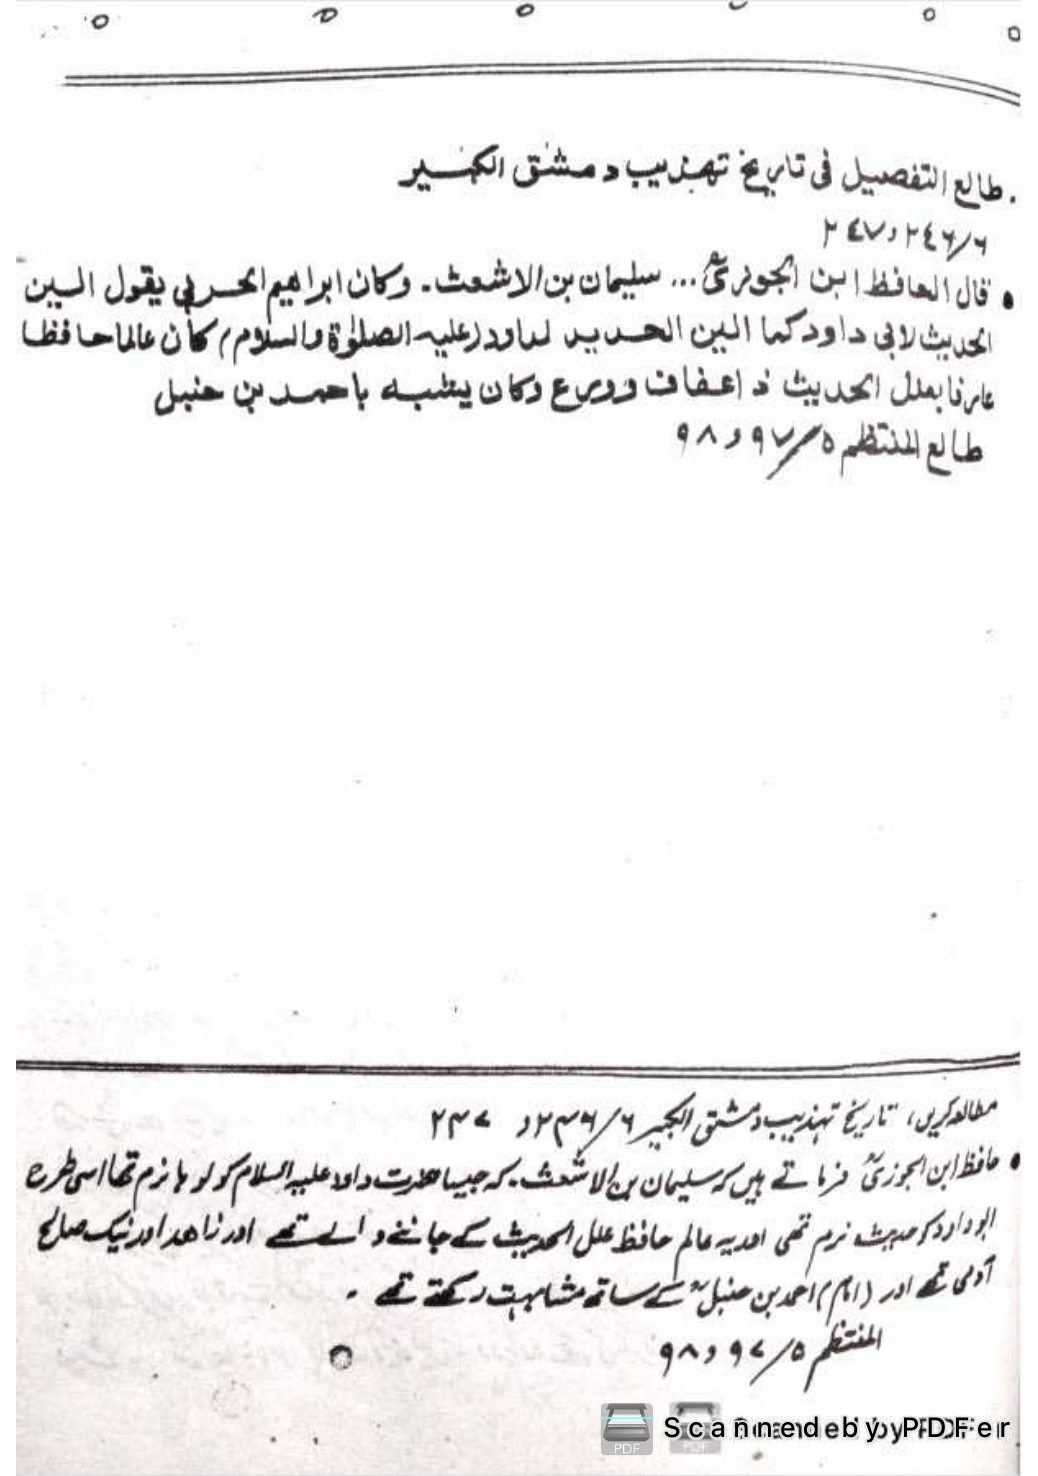 . طالع التفصيل فى تاريخ تهذيب دمشق الكبير
٦/٢٤٦ و ٢٤٧
• قال الحافظ ابن الجوزىؒ ... سليمان بن الاشعث ـ وكان ابراهيم الحربي يقول الين
الحديث لابى داود كما الين الحديد لداود (عليه الصلوٰة والسلام) كان عالما حافظا
عارفا بعلل الحديث ذا عفاف وورع وكان يشبه باحمد بن حنبل
طالع المنتظم ٥/٩٧ و ٩٨
مطالعہ کریں، تاریخ تہذیب دمشق الکبیر ٦/٢٣٦ و ٢٣٧
• حافظ ابن الجوزیؒ فرماتے ہیں کہ سلیمان بن الاشعث۔ کہ جیسا حضرت داود علیہ السلام کو لوہا نرم تھا اسی طرح
ابو داود کو حدیث نرم تھی اور یہ عالم حافظ علل الحدیث کے جاننے والے تھے اور زاھد اور نیک صالح
آدمی تھے اور (امام) احمد بن حنبلؒ کے ساتھ مشابہت رکھتے تھے ۔
المنتظم ٥/٩٧ و ٩٨
PDF
PDF
Scanned by PDFer